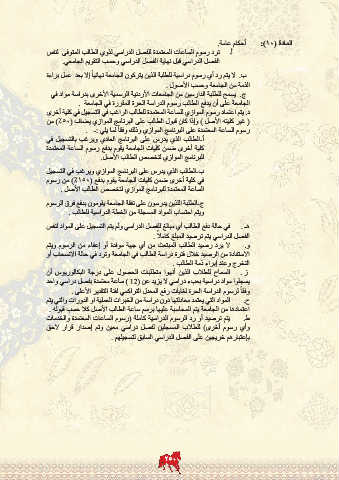 المادة (١٠): أحكام عامة:
أ. ترد رسوم الساعات المعتمدة للفصل الدراسي لذوي الطالب المتوفى لنفس
الفصل الدراسي قبل نهاية الفصل الدراسي وحسب التقويم الجامعي.
ب. لا يتم رد أي رسوم دراسية للطلبة الذين يتركون الجامعة نهائياً إلا بعد عمل براءة
الذمة من الجامعة وحسب الأصول.
ج. يسمح للطلبة الدارسين من الجامعات الأردنية الرسمية الأخرى بدراسة مواد في
الجامعة على أن يدفع الطالب رسوم الدراسة الحرة المقررة في الجامعة
د. يتم اعتماد رسوم الموازي للساعة المعتمدة للطالب الراغب في التسجيل في كلية أخرى
( غير كليته الأصل ) وإذا كان قبول الطالب على البرنامج الموازي يضاف (٥٠٪) من
رسوم الساعة المعتمدة على البرنامج الموازي وذلك وفقاً لما يلي :-
أ.الطالب الذي يدرس على البرنامج العادي ويرغب بالتسجيل في
كلية أخرى ضمن كليات الجامعة يقوم بدفع رسوم الساعة المعتمدة
للبرنامج الموازي لتخصص الطالب الأصل.
ب.الطالب الذي يدرس على البرنامج الموازي ويرغب في التسجيل
في كلية أخرى ضمن كليات الجامعة يقوم بدفع (١٥٠٪) من رسوم
الساعة المعتمدة للبرنامج الموازي لتخصص الطالب الأصل .
ج.الطلبة الذين يدرسون على نفقة الجامعة يقومون بدفع فرق الرسوم
ويتم احتساب المواد المسجلة من الخطة الدراسية للطالب .
هـ. في حالة دفع الطالب أي مبالغ للفصل الدراسي ولم يتم التسجيل على المواد لنفس
الفصل الدراسي يتم ترصيد المبلغ كاملاً
و. لا يرد رصيد الطالب المبتعث من أي جهة موفدة أو إعفاء من الرسوم ويتم
الاستفادة من الرصيد خلال فترة دراسة الطالب في الجامعة وترد في حالة الانسحاب أو
التخرج وعند إبراء ذمة الطالب .
ز. السماح للطلاب الذين أنهوا متطلبات الحصول على درجة البكالوريوس أن
يسجلوا مواد دراسية بعبء دراسي لا يزيد عن (12) ساعة معتمدة بفصل دراسي واحد
وفقاً لرسوم الدراسة الحرة لغايات رفع المعدل التراكمي لفئة التقدير الأعلى .
ح. المواد التي يعتمد معادلتها دون دراسة من الخبرات العملية أو الدورات والتي يتم
اعتمادها من الجامعة يتم المحاسبة عليها برسم ساعة الطالب الأصل كلاً حسب قبوله .
ط. يتم ترصيد أو رد الرسوم الدراسية كاملة (رسوم الساعات المعتمدة والخدمات
وأي رسوم أخرى) للطلاب المسجلين لفصل دراسي معين وتم إصدار قرار لاحق
بإعتبارهم خريجين على الفصل الدراسي السابق لتسجيلهم .